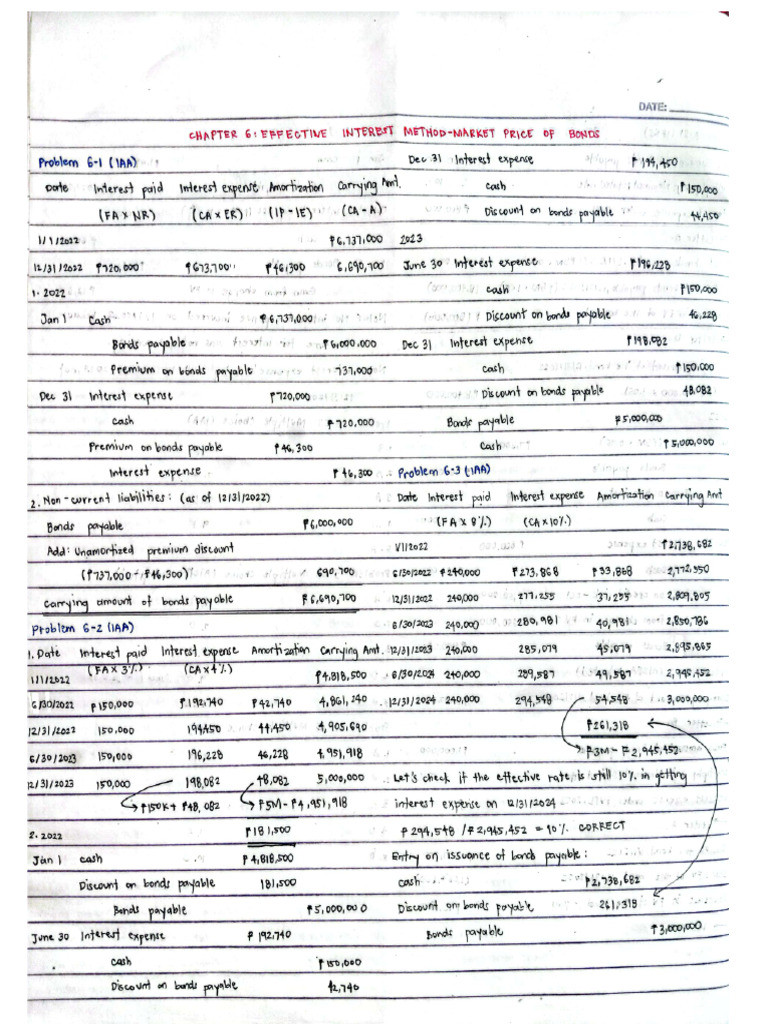 DATE:
CHAPTER 6: EFFECTIVE INTEREST METHOD-MARKET PRICE OF BONDS
Problem 6-1 (IAA)
Date Interest paid Interest expense Amortization Carrying Amt.
(FA X NR) (CA X ER) (IP - IE) (CA - A)
1/1/2022 ₱6,737,000
12/31/2022 ₱720,000 ₱673,700 ₱46,300 6,690,700
1. 2022
Jan 1 Cash ₱6,737,000
Bonds payable ₱6,000,000
Premium on bonds payable 737,000
Dec 31 Interest expense ₱720,000
cash ₱720,000
Premium on bonds payable ₱46,300
Interest expense ₱46,300
2. Non-current liabilities: (as of 12/31/2022)
Bonds payable ₱6,000,000
Add: Unamortized premium discount
(₱737,000 - ₱46,300) 690,700
Carrying amount of bonds payable ₱6,690,700
Problem 6-2 (IAA)
1. Date Interest paid Interest expense Amortization Carrying Amt.
(FA X 3%) (CA X 4%)
1/1/2022 ₱4,818,500
6/30/2022 ₱150,000 ₱192,740 ₱42,740 4,861,240
12/31/2022 150,000 194450 44,450 4,905,690
6/30/2023 150,000 196,228 46,228 4,951,918
12/31/2023 150,000 198,082 48,082 5,000,000
₱150K + ₱48,082 ₱5M - ₱4,951,918
₱181,500
2. 2022
Jan 1 cash ₱4,818,500
Discount on bonds payable 181,500
Bonds payable ₱5,000,000
June 30 Interest expense ₱192,740
cash ₱150,000
Discount on bonds payable 42,740
Dec 31 Interest expense ₱194,450
cash ₱150,000
Discount on bonds payable 44,450
2023
June 30 Interest expense ₱196,228
cash ₱150,000
Discount on bonds payable 46,228
Dec 31 Interest expense ₱198,082
cash ₱150,000
Discount on bonds payable 48,082
Bonds payable ₱5,000,000
Cash ₱5,000,000
Problem 6-3 (IAA)
Date Interest paid Interest expense Amortization Carrying Amt
(FA X 8%) (CA X 10%)
1/1/2022 ₱2,738,682
6/30/2022 ₱240,000 ₱273,868 ₱33,868 2,772,550
12/31/2022 240,000 277,255 37,255 2,809,805
6/30/2023 240,000 280,981 40,981 2,850,786
12/31/2023 240,000 285,079 45,079 2,895,865
6/30/2024 240,000 289,587 49,587 2,945,452
12/31/2024 240,000 294,548 54,548 3,000,000
₱261,318
₱3M - ₱2,945,452
Let's check if the effective rate is still 10% in getting
interest expense on 12/31/2024
₱294,548 / ₱2,945,452 = 10% CORRECT
Entry on issuance of bond payable:
cash ₱2,738,682
Discount on bonds payable 261,318
Bonds payable ₱3,000,000